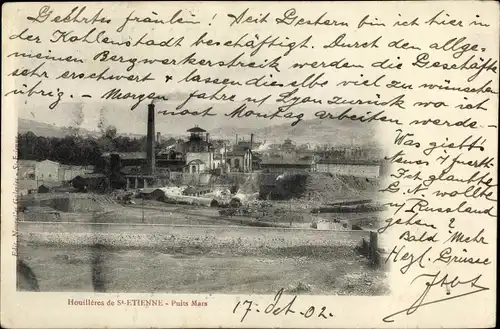 Geehrtes fräulein! Seit Gestern bin ich hier in
der Kohlenstadt beschäftigt. Durch den allge-
meinen Bergwerkerstreik werden die Geschäfte
sehr erschwert & lassen dieselbe viel zu wünschen
übrig. – Morgen fahre nach Lyon zurück wo ich
noch Montag arbeiten werde. –
Was giebts
neues? fuerth
G.N. wollte
Russland
Bald Mehr
Hrzl. Grüsse
Houillères de St-ETIENNE - Puits Mars
17 - Okt - 02